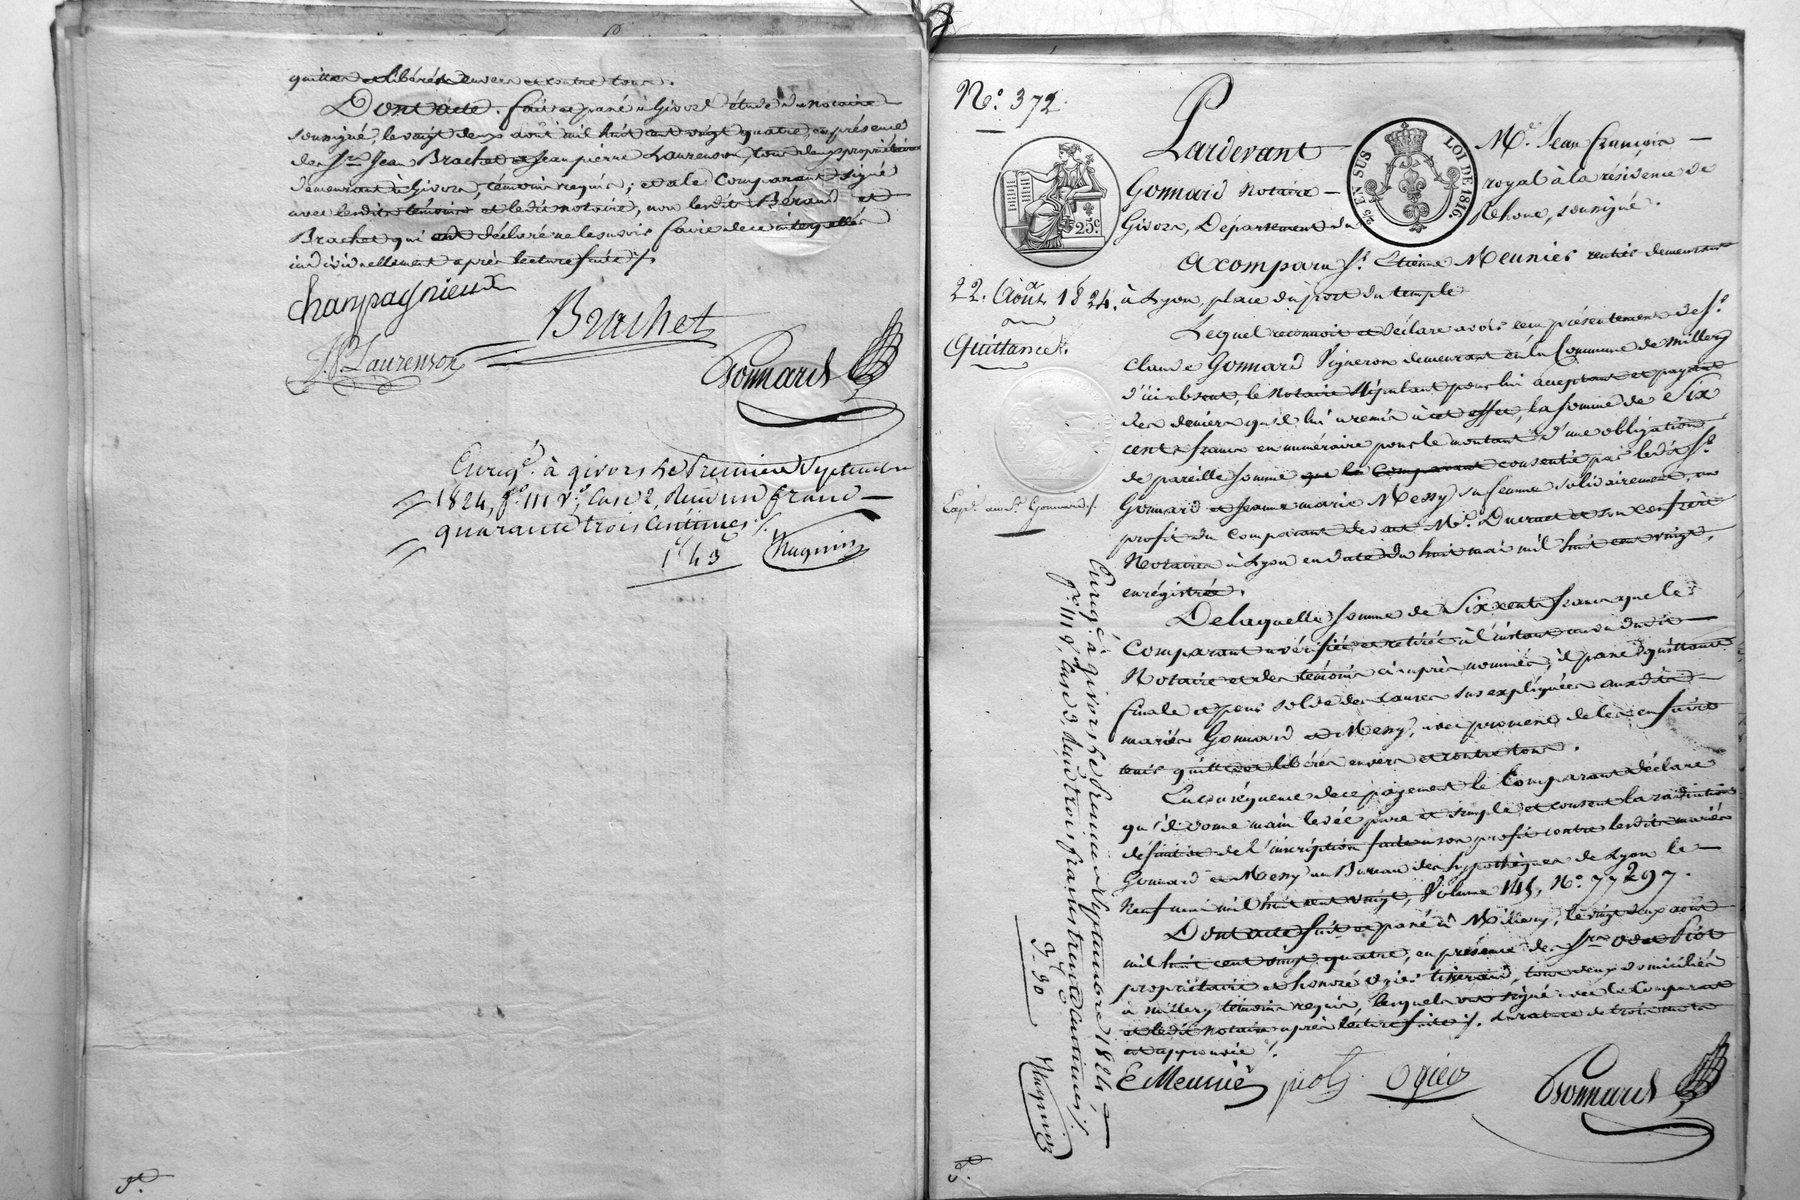 quittes et libérés envers et contre tous.
Dont acte. fait et passé à Givors étude du notaire
soussigné, le vingt deux août mil huit cent vingt quatre, en présence
des Srs Jean Brachet et Jean pierre Laurenson, tous deux propriétaires
demeurant à Givors, témoins requis; et a le Comparant signé
avec lesdits témoins et ledit notaire, non lesdits Béraud et
Brachet qui ont déclaré ne le savoir faire de ce interpellés
individuellement après lecture faite /.
Champagnieux
Brachet
JP. Laurenson
Gonnard
Enrgé. à givors le Premier Septembre
1824, fo. 111 vo., Case 2, Reçu un franc
quarante trois Centimes /.
1f 43c
N°. 372.
22. Août 1824.
Quittance.
Exp. au Sr. Gonnard /.
25c
25 EN SUS
LOI DE 1816.
Pardevant Me. Jean François
Gonnard Notaire royal à la résidence de
Givors, Département du Rhone, soussigné.
A comparu Sr. Etienne Meunier rentier demeurant
à Lyon, place du port du temple
Lequel reconnoit et déclare avoir reçu présentement de Sr.
Claude Gonnard Vigneron demeurant en la Commune de Millery
d'ici absent, le Notaire stipulant pour lui acceptant et payant
des deniers qu'il lui a remis à cet effet, la somme de Six
cents francs en numéraire pour le montant d'une obligation
de pareille somme que le Comparant consentie par ledit Sr.
Gonnard et Jeanne marie Messy sa femme solidairement, au
profit du Comparant devant Me. Ducruet et son confrère
Notaires à Lyon en date du huit mai mil huit cent vingt,
enrégistrée.
De laquelle somme de Six cents francs que le
Comparant a vérifiée et retirée à l'instant au vu dudit
Notaire et des témoins ci-après nommés, il passe quittance
finale et pour solde des causes sus expliquées auxdits
mariés Gonnard et Messy, avec promesse de les en faire
tenir quittes et libérés envers et contre tous.
En conséquence de ce payement le Comparant déclare
qu'il donne main levée pure et simple et consent la radiation
définitive de l'inscription faite à son profit contre lesdits mariés
Gonnard et Messy au Bureau des hypothèques de Lyon le
Neuf mai mil huit cent vingt, Volume 145, N°. 77297.
Dont acte fait et passé à Millery, le vingt deux août
mil huit cent vingt quatre, en présence de Srs Odet Piot
propriétaire et honoré Ogier tisserand, tous deux domiciliés
à Millery témoins requis, lesquels ont signé avec le Comparant
et ledit notaire après lecture faite /. la rature de trois mots
est approuvée /.
E Meunié piot Ogier Gonnard
Enrgé. à givors le Premier Septembre 1824
fo. 111 vo., Case 3, Reçu trois francs trente Centimes /.
3f 30c